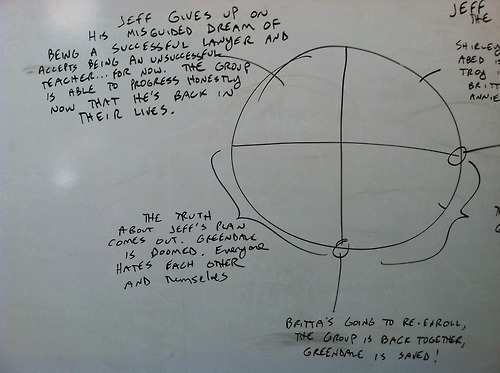 JEFF GIVES UP ON
HIS MISGUIDED DREAM OF
BEING A SUCCESSFUL LAWYER AND
ACCEPTS BEING AN UNSUCCESSFUL
TEACHER... FOR NOW. THE GROUP
IS ABLE TO PROGRESS HONESTLY
NOW THAT HE'S BACK IN
THEIR LIVES.
JEFF
THE
SHIRLEY
ABED IS
TROY
BRITT
ANNIE
THE TRUTH
ABOUT JEFF'S PLAN
COMES OUT. GREENDALE
IS DOOMED. Everyone
HATES EACH OTHER
AND THEMSELVES
BRITTA'S GOING TO RE-ENROLL,
THE GROUP IS BACK TOGETHER,
GREENDALE IS SAVED!